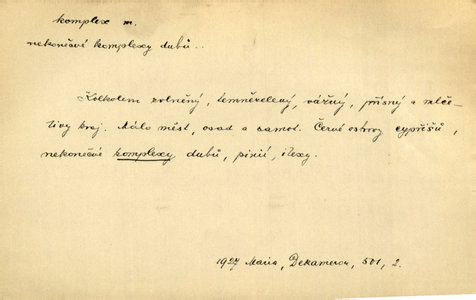 komplex m.
nekonečné komplexy dubů..
Kolkolem zvlněný, temnězelený, vážný, přísný a mlče-
tivý kraj. Málo měst, osad a samot. Černé ostrovy cypřišů,
nekonečné komplexy dubů, pinií, ilexy.
1927 Maria, Dekameron, 501, 2.